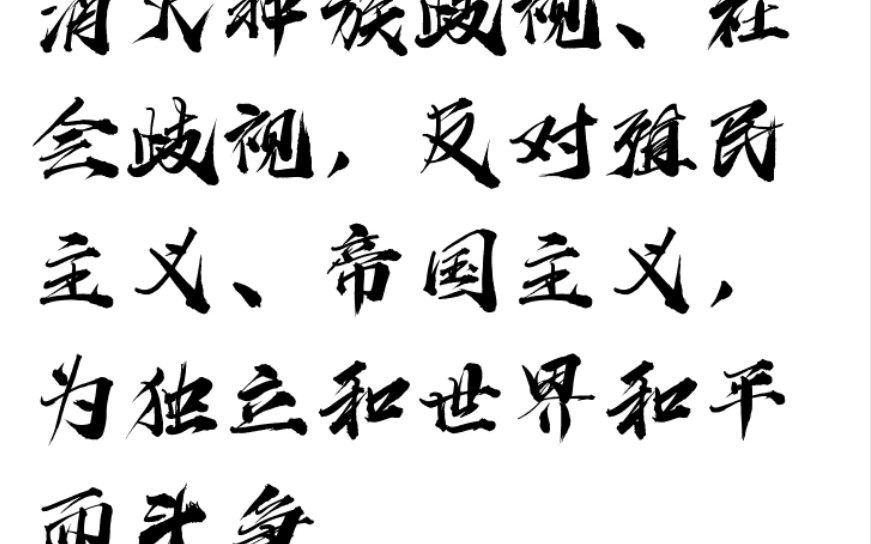 消灭种族歧视、社
会歧视，反对殖民
主义、帝国主义，
为独立和世界和平
而斗争